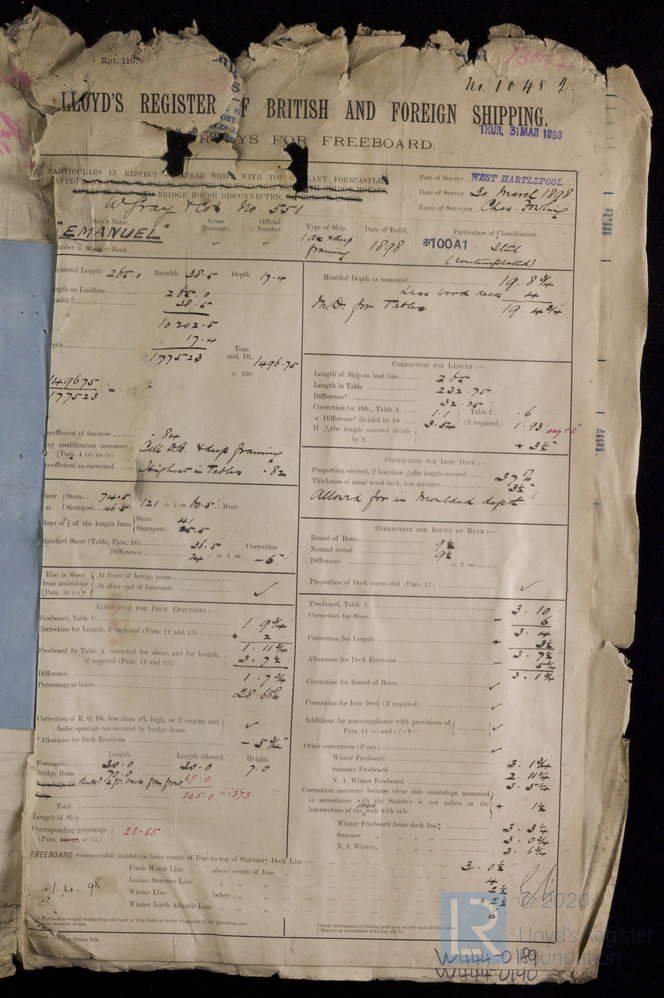 Rpt. 11b.
No. 10482.
LLOYD'S REGISTER OF BRITISH AND FOREIGN SHIPPING.
THUR, 31 MAR 1898
FOR FREEBOARD.
PARTICULARS IN RESPECT OF STEAM SHIP WITH TOP GALLANT FORECASTLE
BRIDGE HOUSE DISCONNECTED,
Port of Survey WEST HARTLEPOOL
Date of Survey March 1898
Name of Surveyor Chas.
W Gray & Co No. 551
Ship's Name
Gross Tonnage.
Official Number.
Type of Ship.
Date of Build.
Particulars of Classification.
"EMANUEL"
1898
100A1 Steel
(contemplated)
Registered Length 265.0 Breadth 38.5 Depth 17.4
Length on Loadline 265.0
38.5
10202.5
17.4
177523
Tons und. Dk. 1496.75
× 100
149675
177523
Moulded Depth as measured 19. 8 3/4
Less wood deck 4
M.D. for Tables 19. 4 3/4
CORRECTION FOR LENGTH :—
Length of Ship on load line 265
Length in Table 232.75
Difference 32.25
Correction for 10ft., Table A. 1.1 Table C. .6
× Difference divided by 10 3.54 (if required) 1.93
If 6/10ths length covered divide by 2.
+ 3½"
Co-efficient of fineness .84
Any modification necessary
[Para. 4 (a) to (e)
Cell D.B. & deep framing
Co-efficient as corrected Highest in Tables .82
CORRECTION FOR IRON DECK :—
Proportion covered, if less than 7/10ths length covered
Thickness of usual wood deck, less stringer 3½"
Allowed for in moulded depth
Sheer at Stem 74.5
Sternpost 46.5
121 ÷ 2 = 60.5 Mean
Sheer at 1/8 of the length from Stem 41
Sternpost
Standard Sheer (Table, Para. 16) 36.5
Difference 24 ÷ 4 =
Correction
- 6"
CORRECTION FOR ROUND OF BEAM :—
Round of Beam 9½
Normal round 9½
Difference ÷ 2 =
Proportion of Deck uncovered (Para. 17)
Rise in Sheer from amidships [Para. 16 (e)]
At front of bridge house
At after end of forecastle
ALLOWANCE FOR DECK ERECTIONS :—
Freeboard, Table C 1. 9 3/4
Correction for Length, if required (Para. 12 and 13) + 2
1. 11 3/4
Freeboard by Table A corrected for sheer, and for length, if required (Para. 12 and 13) 3. 7½
Difference 1. 7 3/4
Percentage as below 28.65%
Correction of R. Q. Dk. less than 4ft. high, or if engine and boiler openings not covered by bridge house
Allowance for Deck Erections - 5 3/4"
Length. Length allowed. Height.
Forecastle 30.0 30.0 7.0
Bridge House 70.0 69.0
Total
Length of Ship 265.0 = .373
Corresponding percentage (Para. 28.65
Freeboard, Table A 3. 10
Correction for Sheer - 6
3. 4
Correction for Length + 3½
3. 7½
Allowance for Deck Erections - 5 3/4
3. 1 3/4
Correction for Round of Beam
Correction for Iron Deck (if required)
Additions for non-compliance with provisions of Para. 11 (e) and (f)
Other corrections (if any)
Winter Freeboard 3. 1 3/4
Summer Freeboard 2. 11¼
N. A. Winter Freeboard 3. 5¼
Correction necessary because clear side amidships measured in accordance with the Statutes is not taken at the intersection of the deck with side. + 1½
Winter Freeboard from deck line 3. 3¼
Summer " " " 3. 0 3/4
N.A. Winter, " " " 3. 6 3/4
FREEBOARD recommended amidships from centre of Disc to top of Statutory Deck Line 3. 0½
Fresh Water Line above centre of Disc 4
Indian Summer Line " " 2½
Winter Line below " 2½
Winter North Atlantic Line " "
1.4.98
© 2020
Lloyd's Register
Foundation
LR
W444-0189
W444-0190